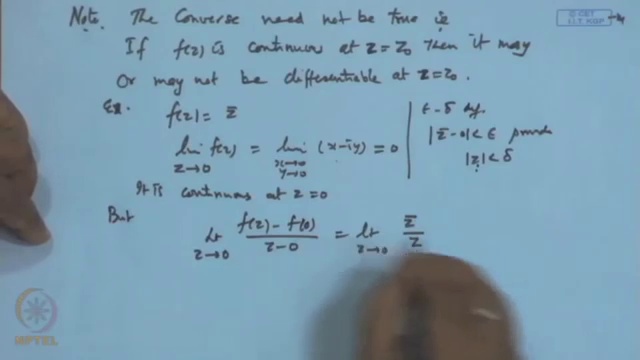 Note. The Converse need not be true ie
© CET
I.I.T. KGP
If f(z) is continuous at z=z₀ then it may
Or may not be differentiable at z=z₀.
Ex. f(z) = z̄
lim z→0 f(z) = lim x→0 y→0 (x-iy) = 0
ε-δ def.
|z̄-0|<ε provided
|z|<δ
It is continuous at z=0
But
lt z→0 f(z)-f(0) / z-0 = lt z→0 z̄ / z
NPTEL